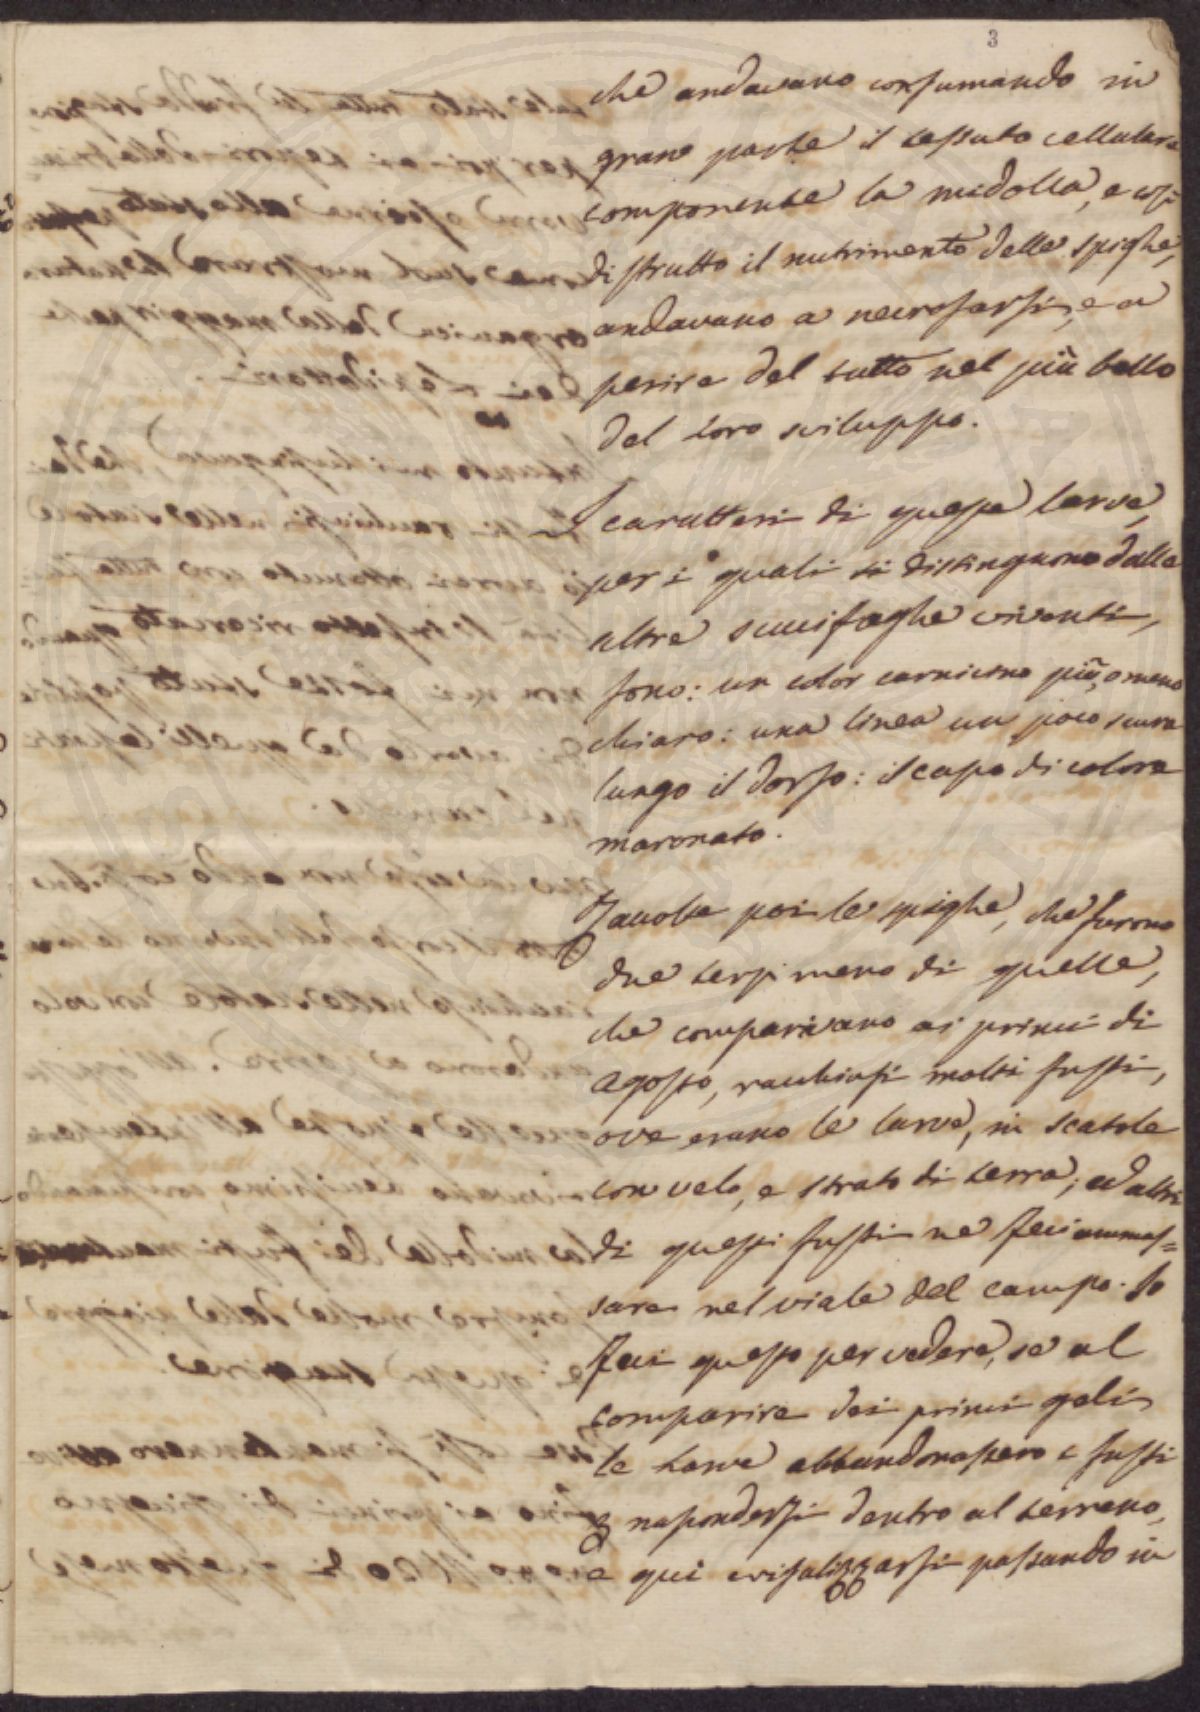 3
che andavano consumando in
gran parte il tessuto cellulare
componente la midolla, e così
distrutto il nutrimento delle spighe,
andavano a necrosarsi, e a
perire del tutto nel più bello
del loro sviluppo.
I caratteri di queste larve,
per i quali si distinguono dalle
altre succifaghe viventi,
sono: un color carnicino più, o meno
chiaro: una linea un poco scura
lungo il dorso: il capo di colore
maronato.
Racolte poi le spighe, che furono
due terzi meno di quelle,
che comparivano ai primi di
Agosto, racchiusi molti fusti,
ove erano le larve, in scatole
con velo, e strato di terra; ed altri
di questi fusti ne feci ammas=
sare nel viale del campo. Io
feci questo per vedere, se al
comparire dei primi geli
le larve abbandonassero i fusti
nascondersi dentro al terreno,
e qui crisalizzarsi passando in